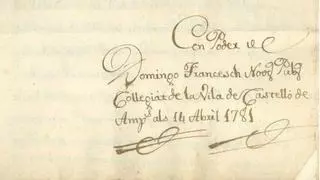 Con Poder de
Domingo Francesch Not.ͬ Pub.ͨ
Collegiat de la Vila de Castelló de
Amp.ˢ als 14 Abril 1781